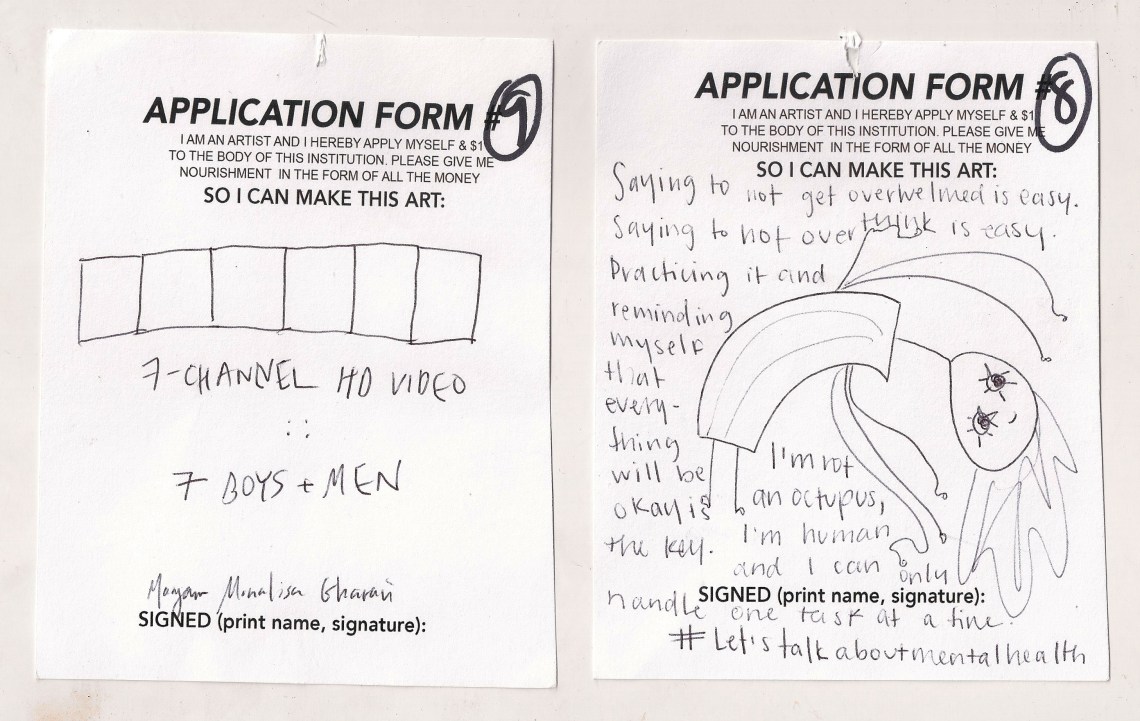 APPLICATION FORM #9
I AM AN ARTIST AND I HEREBY APPLY MYSELF & $1
TO THE BODY OF THIS INSTITUTION. PLEASE GIVE ME
NOURISHMENT IN THE FORM OF ALL THE MONEY
SO I CAN MAKE THIS ART:
7-CHANNEL HD VIDEO
::
7 BOYS + MEN
Monalisa Gharavi
SIGNED (print name, signature):
APPLICATION FORM #8
I AM AN ARTIST AND I HEREBY APPLY MYSELF & $1
TO THE BODY OF THIS INSTITUTION. PLEASE GIVE ME
NOURISHMENT IN THE FORM OF ALL THE MONEY
SO I CAN MAKE THIS ART:
Saying to not get overwelmed is easy.
Saying to not over think is easy.
Practicing it and
reminding
myself
that
every-
thing
will be
okay is
the key.
I'm not
an octupus,
I'm human
and I can only
handle one task at a time.
SIGNED (print name, signature):
# Let's talk about mental health